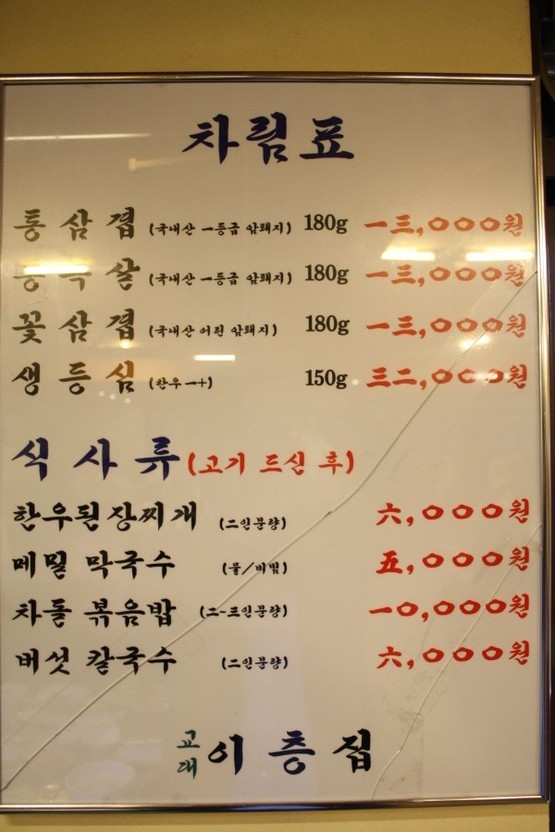 차림표
통삼겹 (국내산 一등급 암퇘지) 180g 一三,○○○원
통목살 (국내산 一등급 암퇘지) 180g 一三,○○○원
꽃삼겹 (국내산 어린 암퇘지) 180g 一三,○○○원
생등심 (한우 一+) 150g 三二,○○○원
식사류 (고기 드신 후)
한우된장찌개 (二인분량) 六,○○○원
메밀 막국수 (물/비빔) 五,○○○원
차돌 볶음밥 (二-三인분량) 一○,○○○원
버섯 칼국수 (二인분량) 六,○○○원
고대 이층집